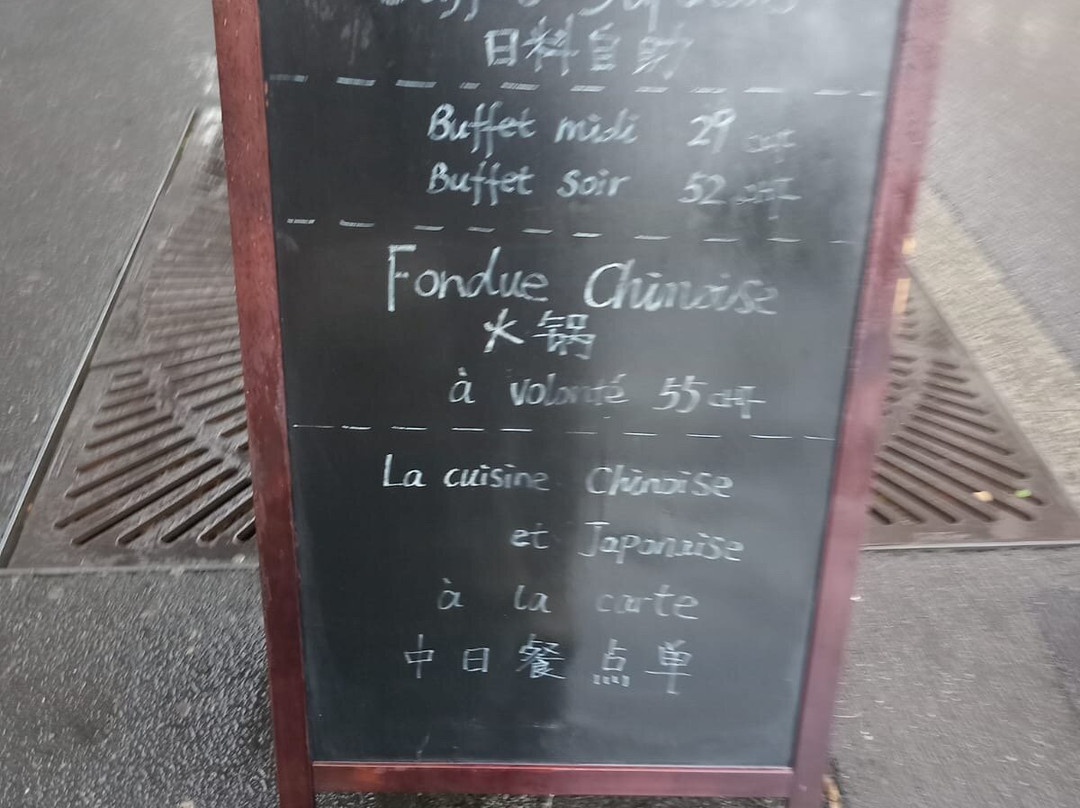 日料自助
Buffet midi 29 CHF
Buffet soir 52 CHF
Fondue Chinoise
火锅
à volonté 55 CHF
La cuisine Chinoise
et Japonaise
à la carte
中日餐点单